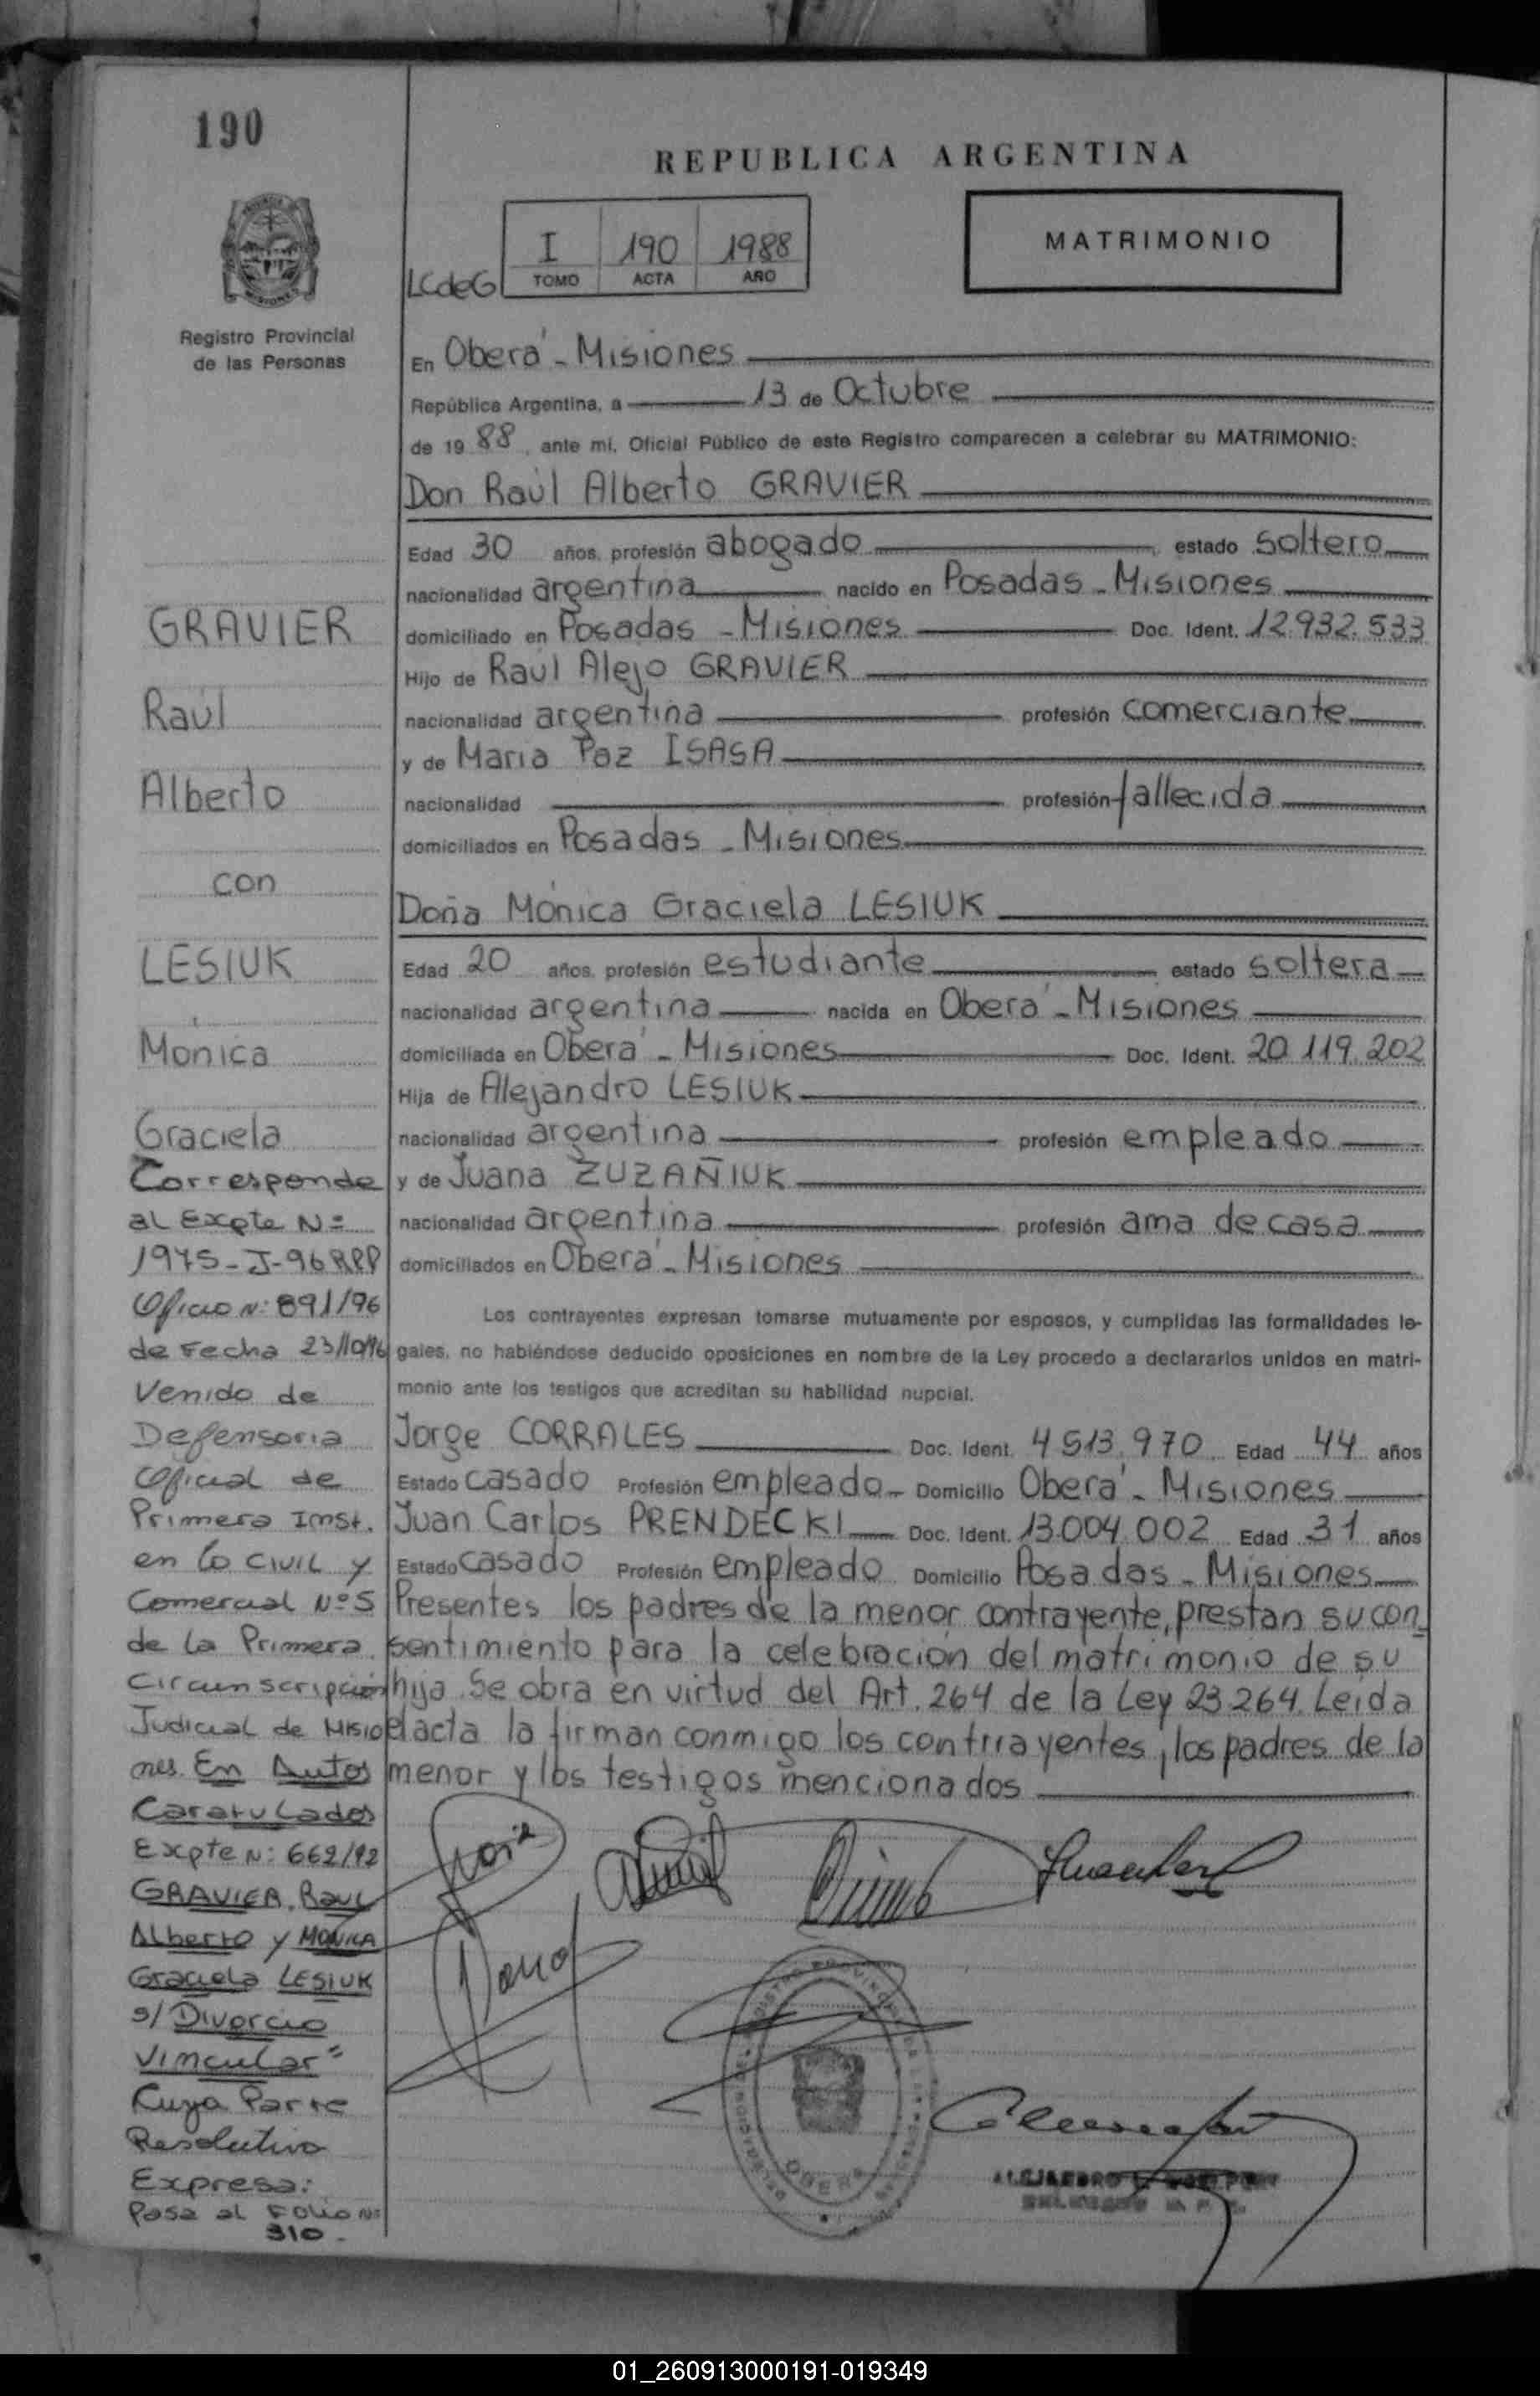 190
REPUBLICA ARGENTINA
I 190 1988
TOMO ACTA AÑO
LCdeG
MATRIMONIO
Registro Provincial
de las Personas
En Oberá - Misiones
República Argentina, a 13 de Octubre
de 19 88, ante mí, Oficial Público de este Registro comparecen a celebrar su MATRIMONIO:
Don Raúl Alberto GRAVIER
Edad 30 años, profesión abogado, estado soltero
nacionalidad argentina nacido en Posadas - Misiones
domiciliado en Posadas - Misiones Doc. Ident. 12.932.533
Hijo de Raúl Alejo GRAVIER
nacionalidad argentina profesión comerciante
y de Maria Paz ISASA
nacionalidad profesión fallecida
domiciliados en Posadas - Misiones
Doña Mónica Graciela LESIUK
Edad 20 años, profesión estudiante estado soltera
nacionalidad argentina nacida en Oberá - Misiones
domiciliada en Oberá - Misiones Doc. Ident. 20.119.202
Hija de Alejandro LESIUK
nacionalidad argentina profesión empleado
y de Juana ZUZAÑIUK
nacionalidad argentina profesión ama de casa
domiciliados en Oberá - Misiones
Los contrayentes expresan tomarse mutuamente por esposos, y cumplidas las formalidades le-
gales, no habiéndose deducido oposiciones en nombre de la Ley procedo a declararlos unidos en matri-
monio ante los testigos que acreditan su habilidad nupcial.
Jorge CORRALES Doc. Ident. 4.513.970 Edad 44 años
Estado casado Profesión empleado - Domicilio Oberá - Misiones
Juan Carlos PRENDECKI Doc. Ident. 13.004.002 Edad 31 años
Estado casado Profesión empleado Domicilio Posadas - Misiones
Presentes los padres de la menor contrayente, prestan su con_
sentimiento para la celebración del matrimonio de su
hija. Se obra en virtud del Art. 264 de la Ley 23.264. Leida
el acta la firman conmigo los contrrayentes, los padres de la
menor y los testigos mencionados
GRAVIER
Raúl
Alberto
con
LESIUK
Mónica
Graciela
Corresponde
al Expte Nº
1975-J-96 RPP
Oficio N: 891/96
de Fecha 23/10/96
Venido de
Defensoria
Oficial de
Primera Inst.
en lo CIVIL y
Comercial Nº5
de la Primera
Circunscripción
Judicial de Misio
nes. En Autos
Caratulados
Expte N: 662/92
GRAVIER, Raul
Alberto y MONICA
Graciela LESIUK
s/ Divorcio
Vincular"
Cuya Parte
Resolutiva
Expresa:
Pasa al Folio Nº
310 -
OBERA
01_260913000191-019349